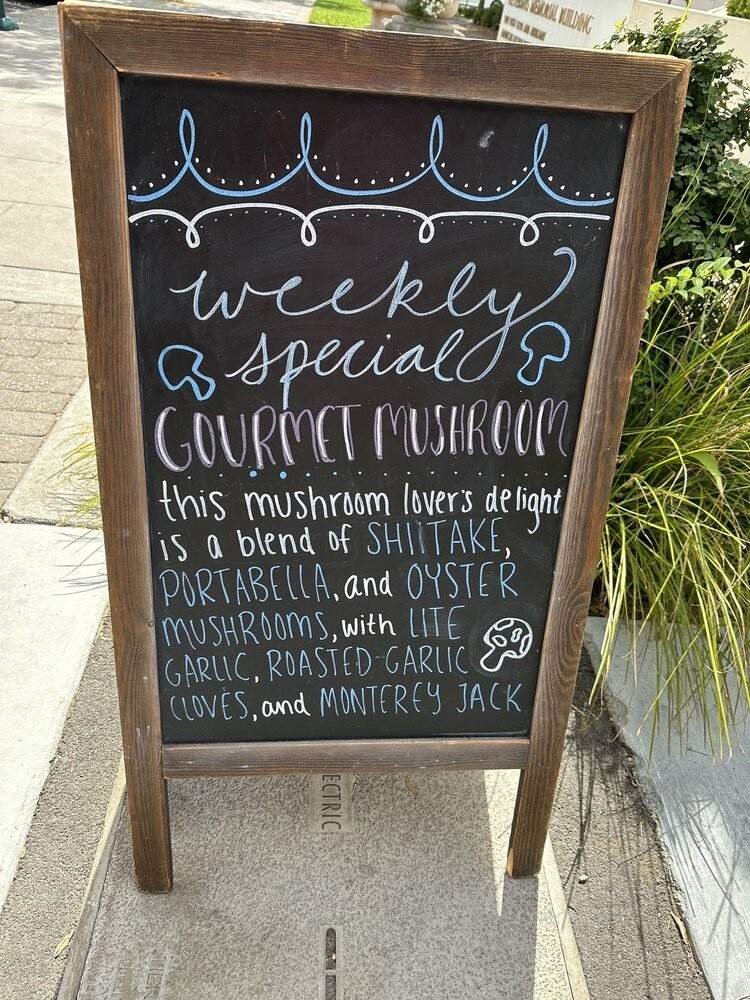 MEMORIAL BUILDING
weekly
special
GOURMET MUSHROOM
this mushroom lover's delight
is a blend of SHIITAKE,
PORTABELLA, and OYSTER
MUSHROOMS, with LITE
GARLIC, ROASTED GARLIC
CLOVES, and MONTEREY JACK
ECTRIC